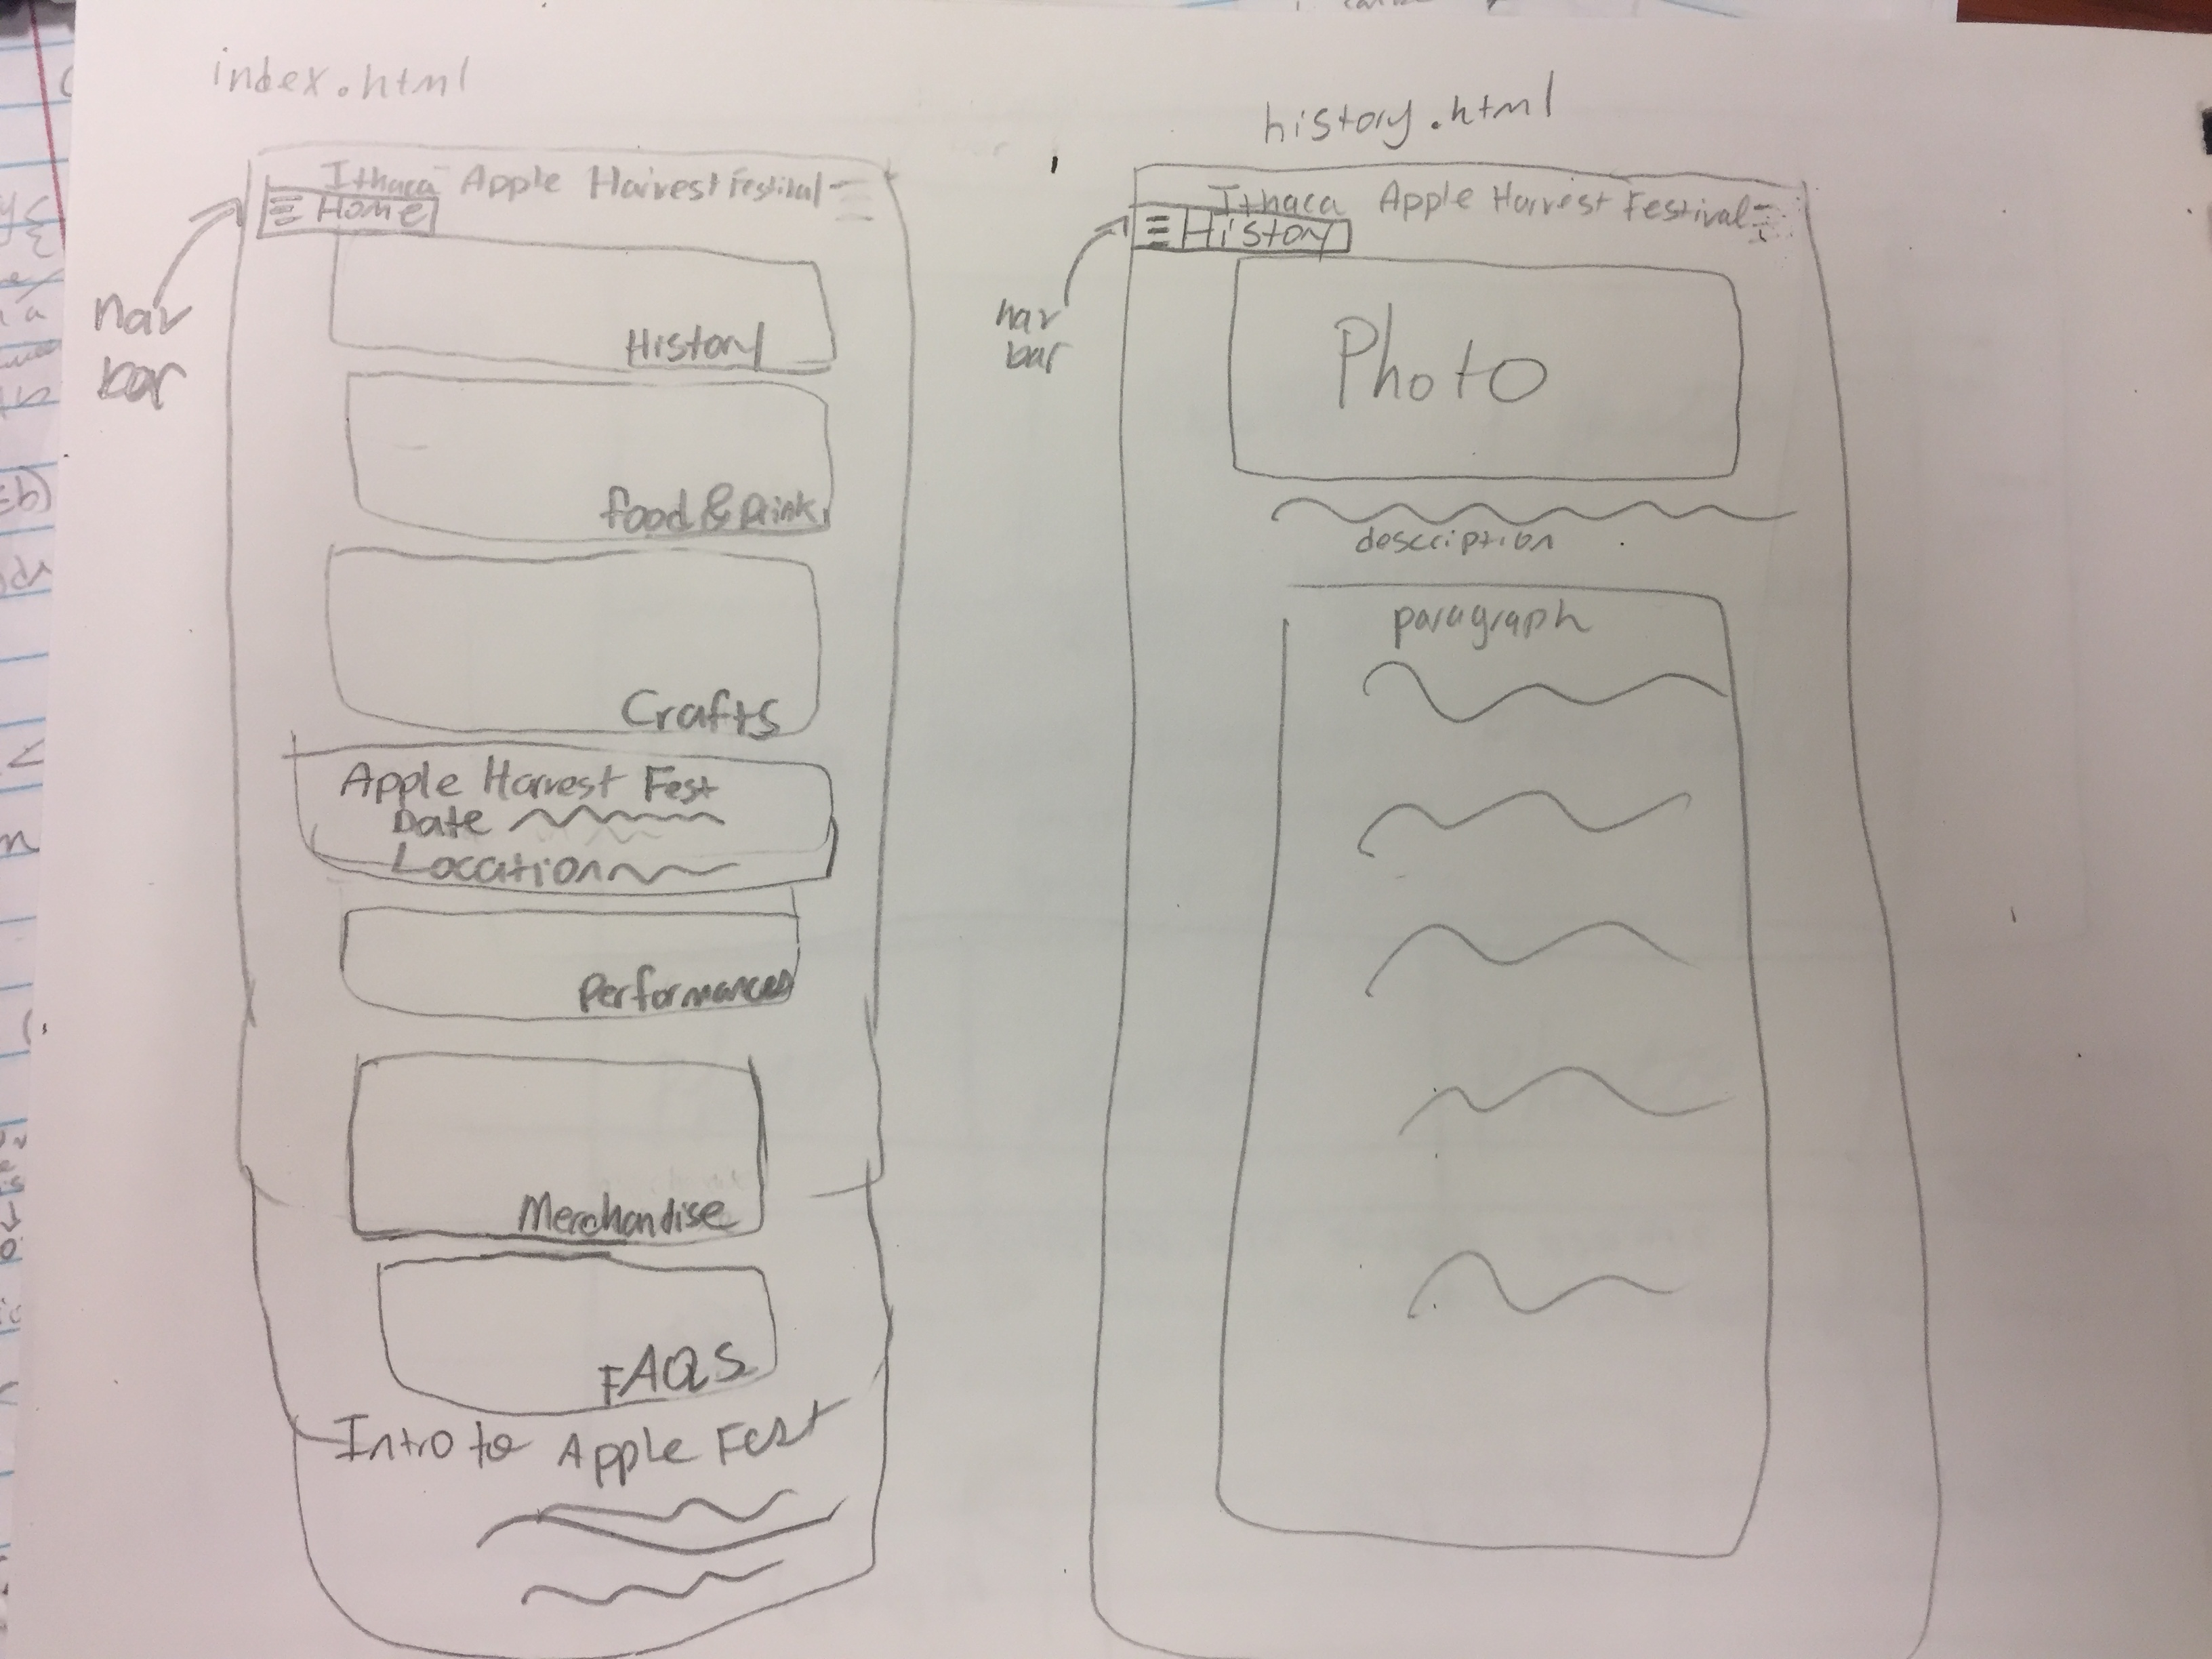 index.html
Ithaca Apple Harvest Festival
Home
nav
bar
History
food & Drink
Crafts
Apple Harvest Fest
Date
Location
Performances
Merchandise
FAQS
Intro to Apple Fest
history.html
Ithaca Apple Harvest Festival
History
nav
bar
Photo
description
paragraph